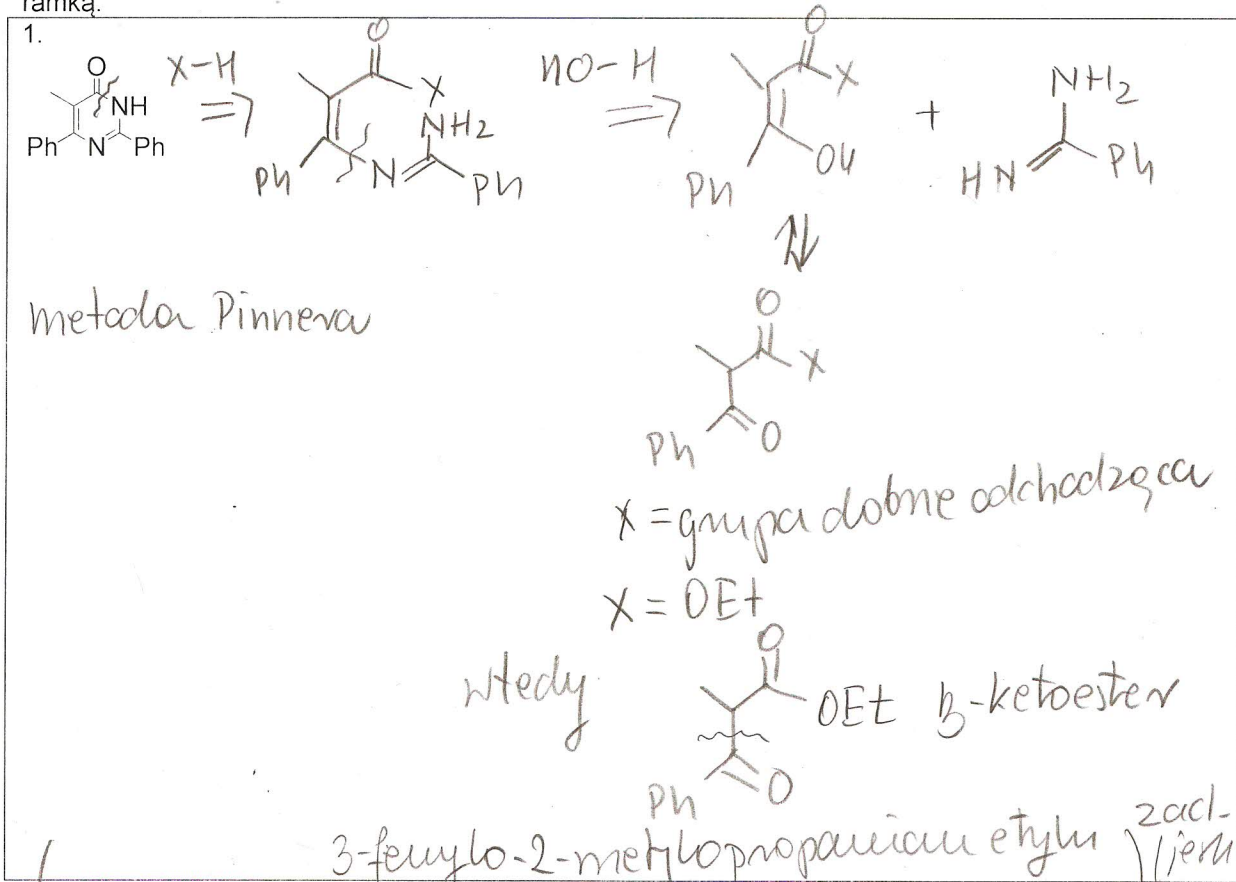 ramką.
1.
O
NH
Ph N Ph
X-H
O
X
NH2
Ph N Ph
HO-H
O
X
OH
Ph
+
NH2
HN Ph
metoda Pinnera
O
X
Ph O
X = grupa dobrze odchodząca
X = OEt
wtedy
O
OEt β-ketoester
Ph O
3-fenylo-2-metylopropanian etylu